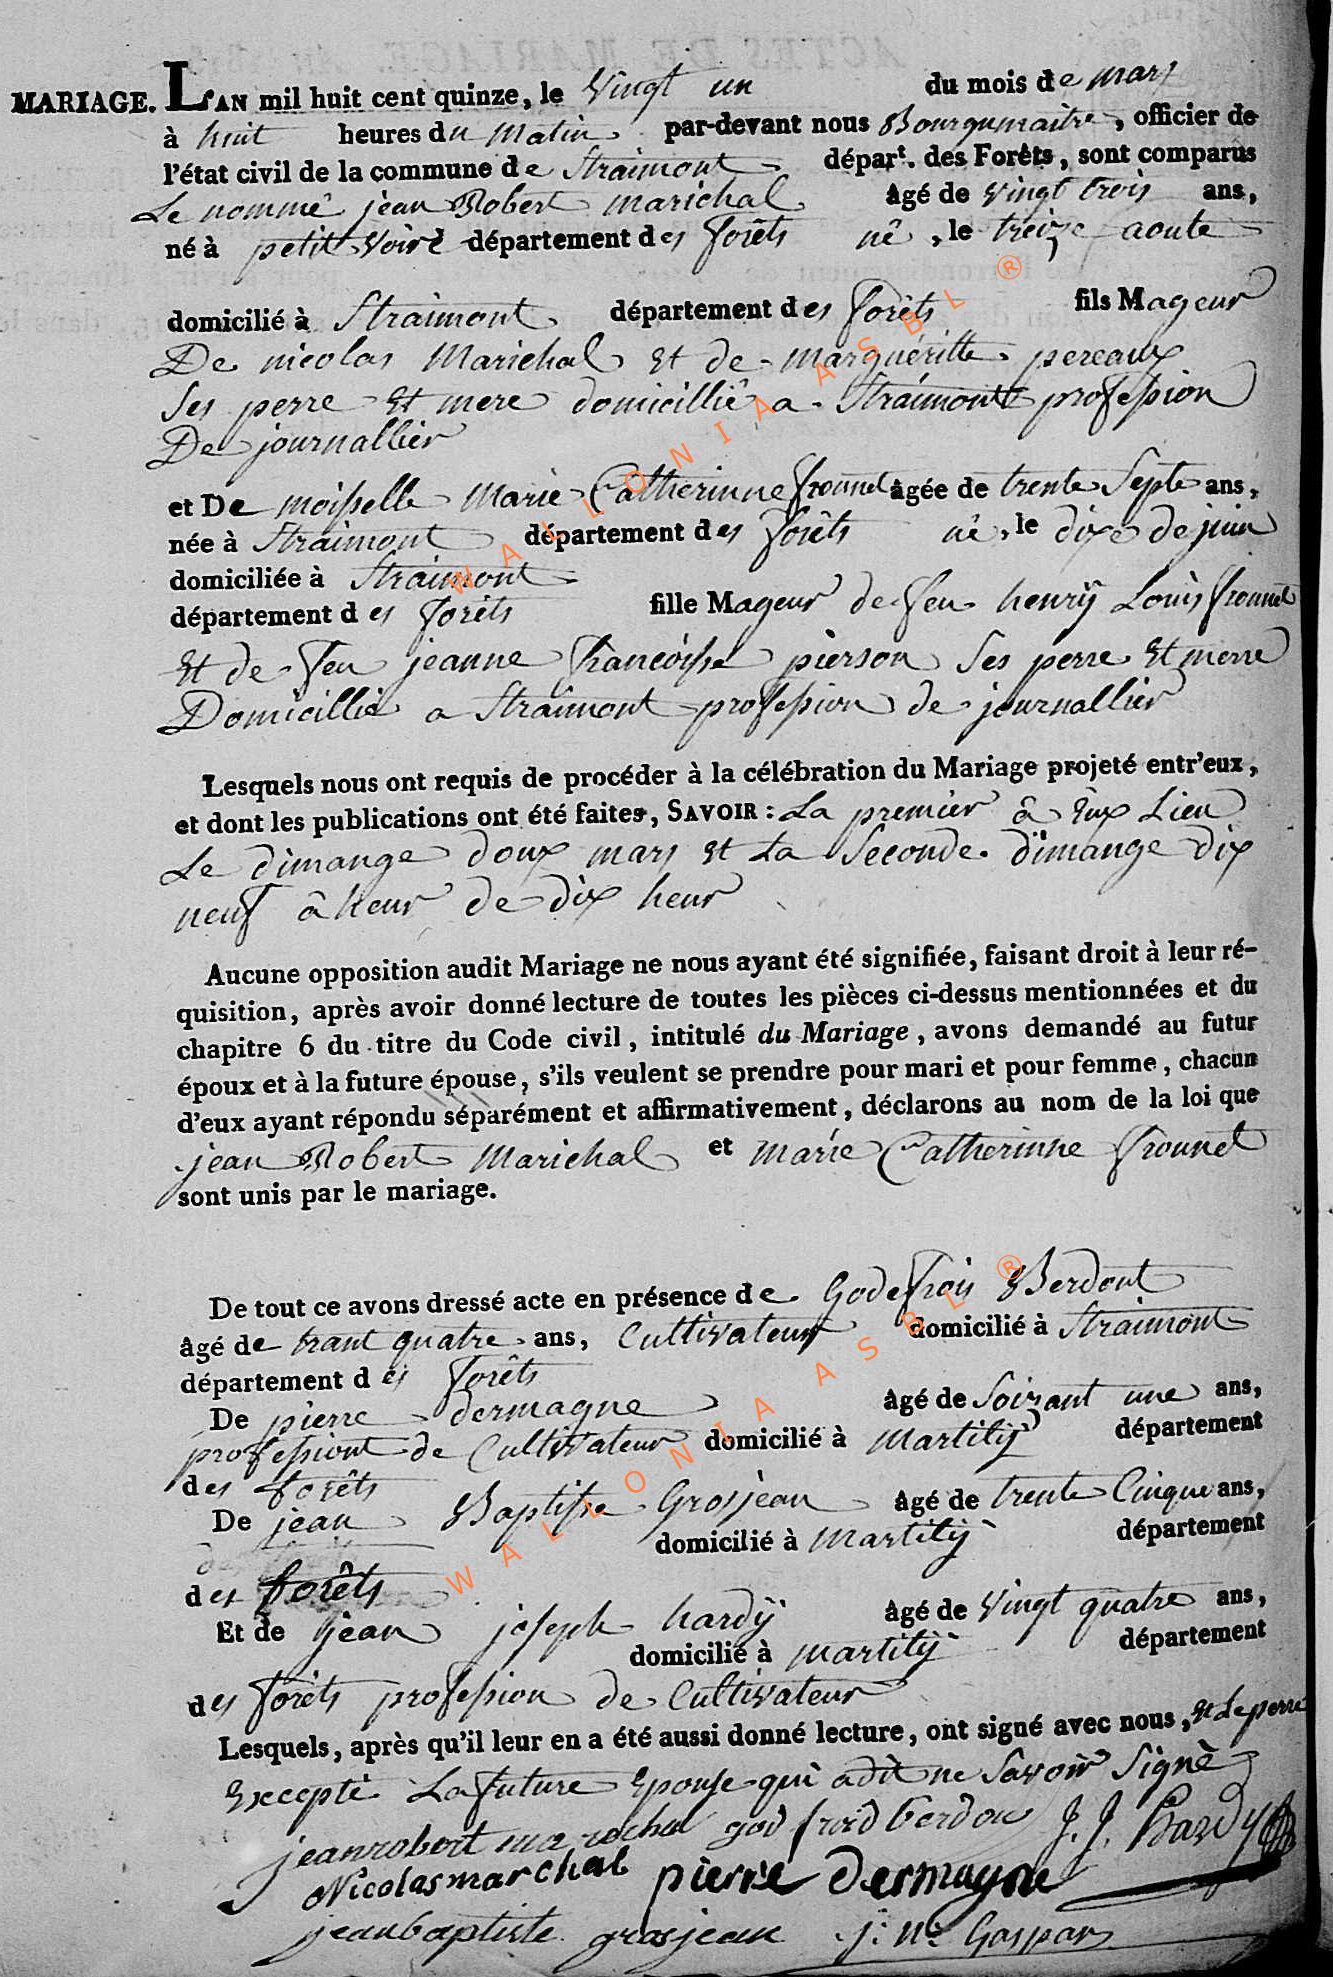 MARIAGE. L'AN mil huit cent quinze, le Vingt un du mois de mars
à huit heures du Matin par-devant nous Bourgumaitre, officier de
l'état civil de la commune de Straimont départ. des Forêts, sont comparus
Le nommé jean Robert marichal âgé de vingt trois ans,
né à petit Voire département des forêts né, le treize aoute
domicilié à Straimont département des forêts fils Mageur
De nicolas Marichal et de marguéritte pereaux
Ses perre Et mere domicillié a Straimont profession
De journallier
et De moiselle Marie Catherinne fronnet âgée de trente Septe ans,
née à Straimont département des forêts né, le dixe de juin
domiciliée à Straimont
département des forêts fille Mageur de feu henrÿ Louis fronnet
Et de feu jeanne francoisse pierson Ses perre Et merre
Domicillié a Straimont profession de journallier
Lesquels nous ont requis de procéder à la célébration du Mariage projeté entr'eux,
et dont les publications ont été faites, SAVOIR : La premier â Eux Lieu
Le dimange doux mars et La Seconde dimange dix
neuf â heur de dix heur
Aucune opposition audit Mariage ne nous ayant été signifiée, faisant droit à leur ré-
quisition, après avoir donné lecture de toutes les pièces ci-dessus mentionnées et du
chapitre 6 du titre du Code civil, intitulé du Mariage, avons demandé au futur
époux et à la future épouse, s'ils veulent se prendre pour mari et pour femme, chacun
d'eux ayant répondu séparément et affirmativement, déclarons au nom de la loi que
jean Robert Marichal et marie Catherinne fronnet
sont unis par le mariage.
De tout ce avons dressé acte en présence de Godefrois Berdout
âgé de trant quatre ans, Cultivateur domicilié à Straimont
département des forêts
De pierre dermagne âgé de Soixant une ans,
professiont de Cultivateur domicilié à Martilÿ département
des forêts
De jean Baptisse Grosjean âgé de trente Cinque ans,
domicilié à Martilÿ département
des forêts
Et de jean joseph hardÿ âgé de Vingt quatre ans,
domicilié à martilÿ département
des forêts profession de Cultivateur
Lesquels, après qu'il leur en a été aussi donné lecture, ont signé avec nous, Et Le perre
Excepté La future Epouse qui a dit ne Savoir Signé
jean robert marechal god froid berdou J. J. Hardy
Nicolas marchal pierre Dermagne
jean baptiste grosjean j: n: Gaspar
WALLONIA ASBL ®
WALLONIA ASBL ®